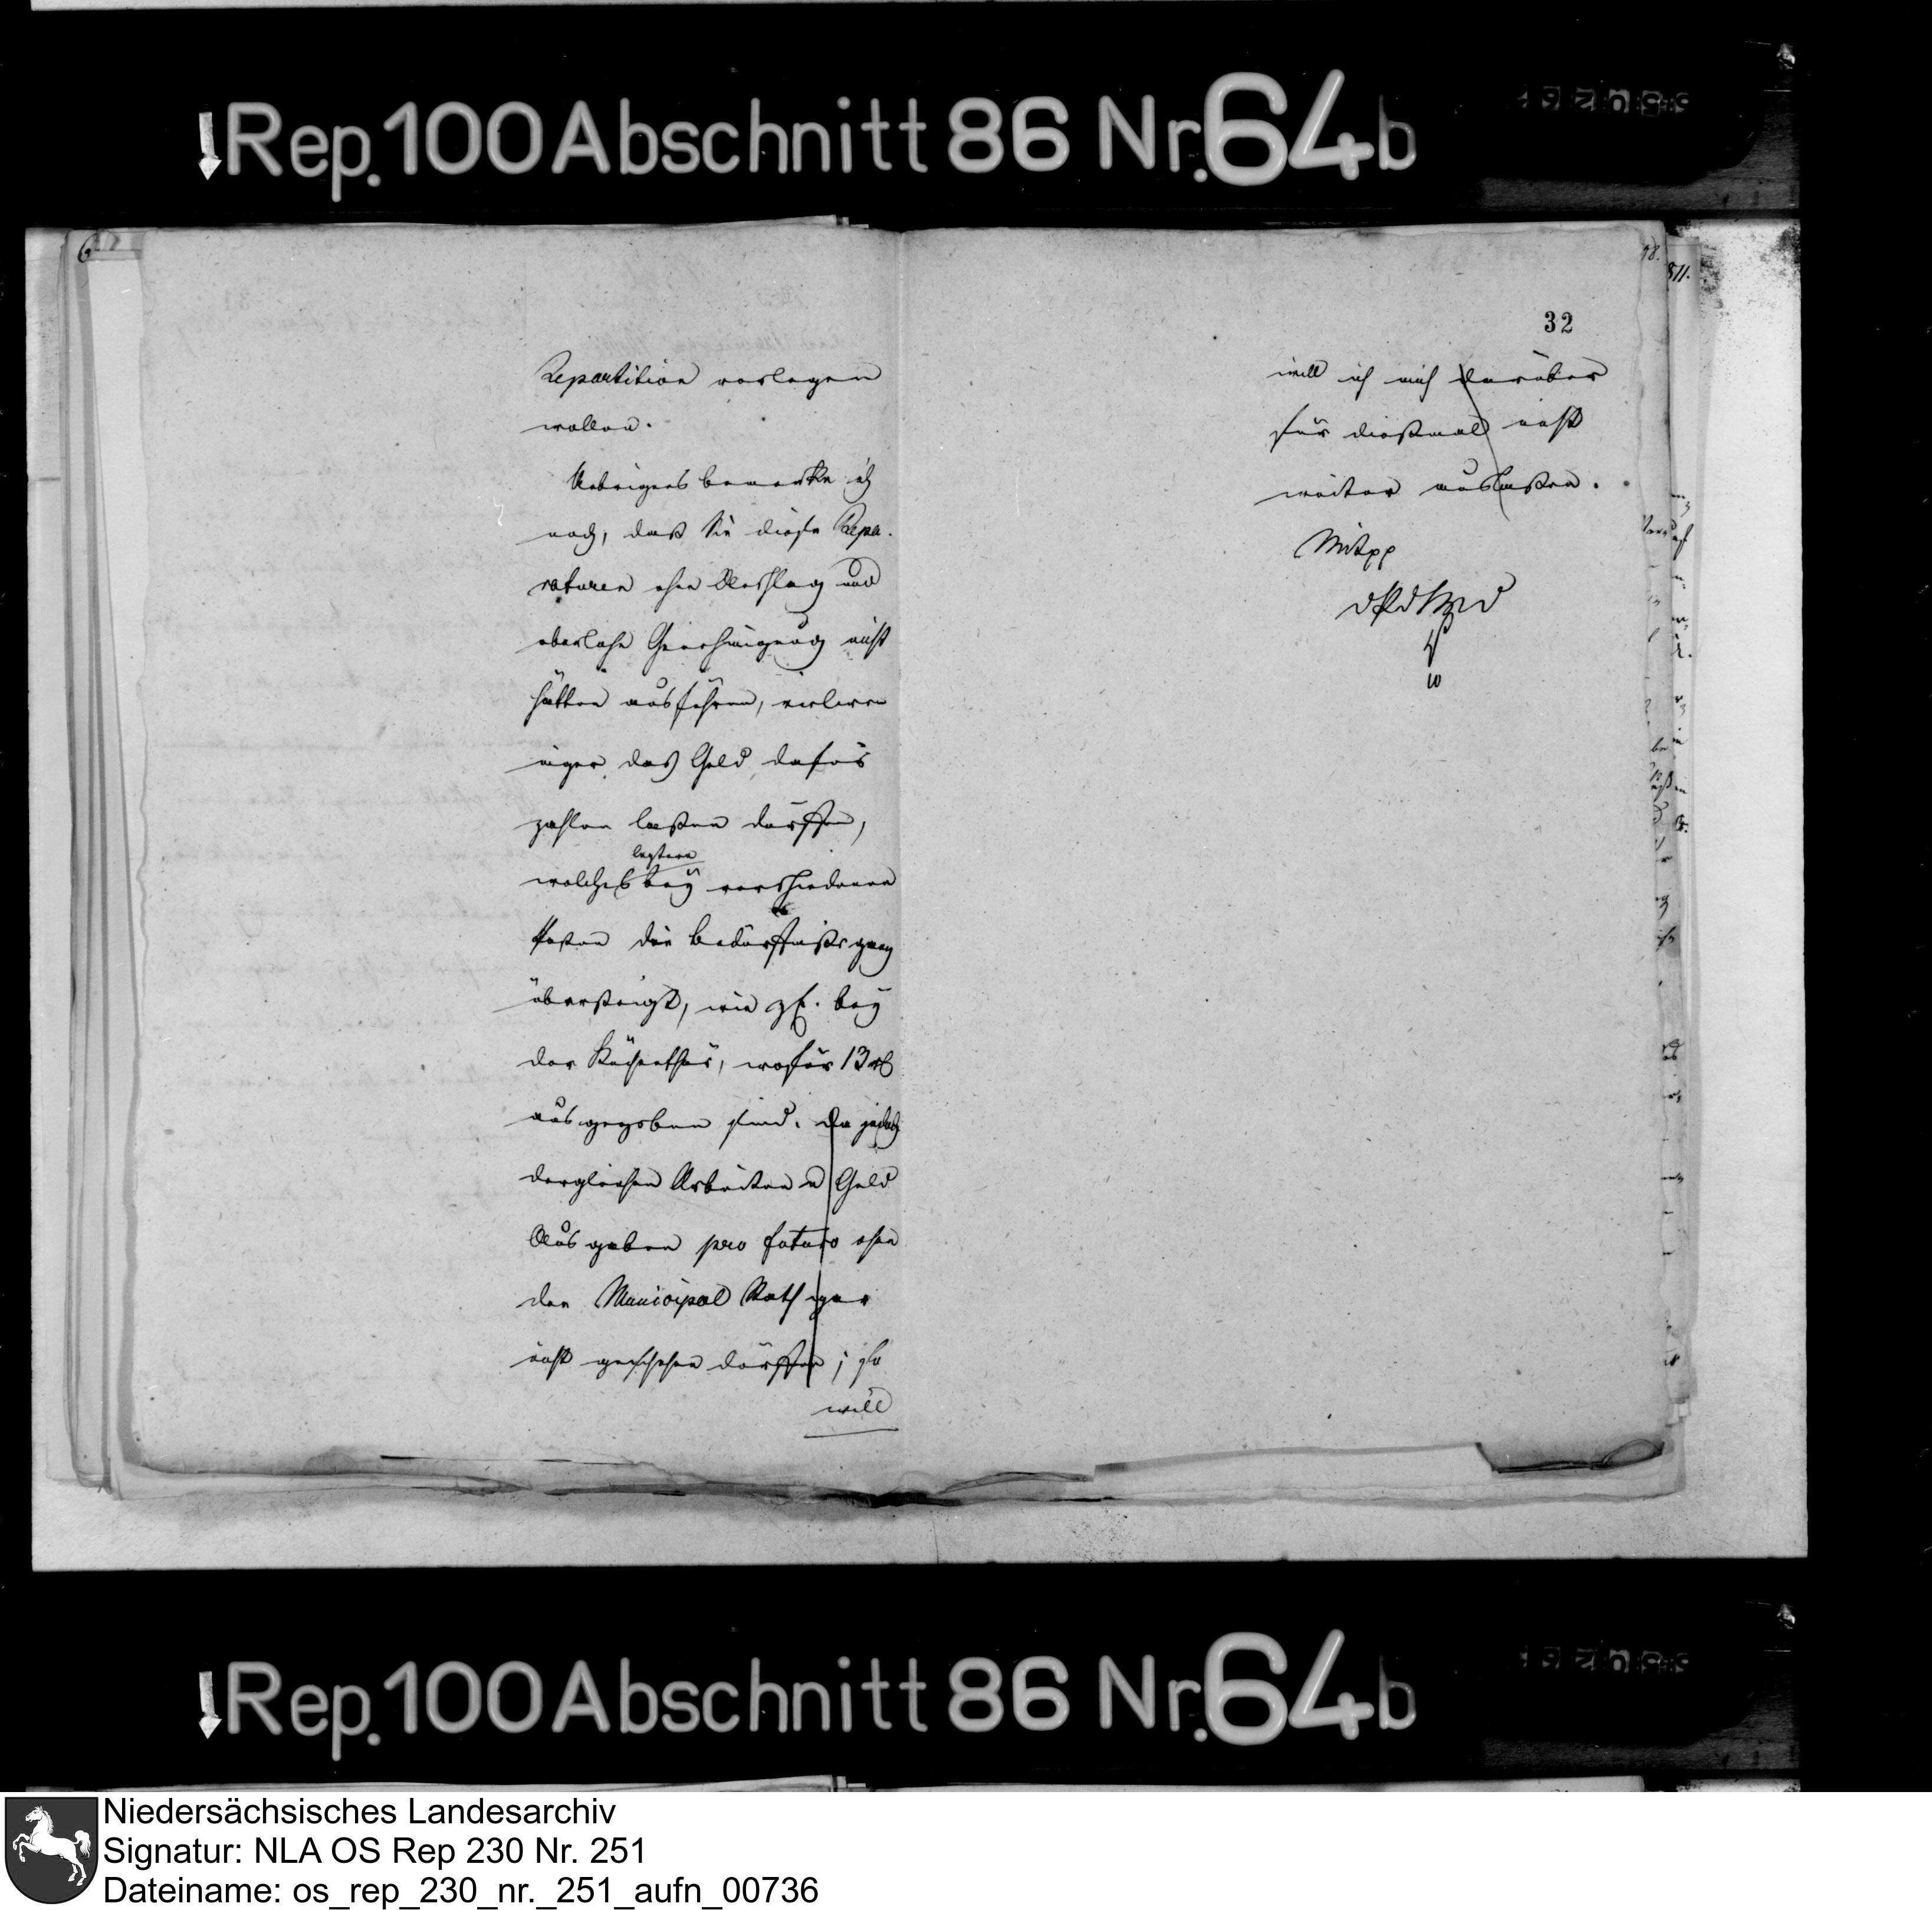 Rep. 100 Abschnitt 86 Nr. 64b
6
32
Repartition vorlegen
wollen.
Uebrigens bemerke ich
noch, daß Sie diese Repa-
raturen ohne Anschlag und
oberliche Genehmigung nicht
hätten ausführen, vielwe-
niger das Geld dafür
zahlen laßen dürffen,
letztere
welches bey verschiedenen
Posten die Bedürfniße
übersteigt, wie z.E. bey
der Küchenthür, wofür 13 rt
ausgegeben sind. Da jedoch
dergleichen Arbeiten u Geld
Ausgaben pro futuro ohne
den Municipal Rath gar
nicht geschehen dürffen; so
will
will ich mich darüber
für dießmal nicht
weiter auslaßen.
Mit pp
Rep. 100 Abschnitt 86 Nr. 64b
Niedersächsisches Landesarchiv
Signatur: NLA OS Rep 230 Nr. 251
Dateiname: os_rep_230_nr._251_aufn_00736